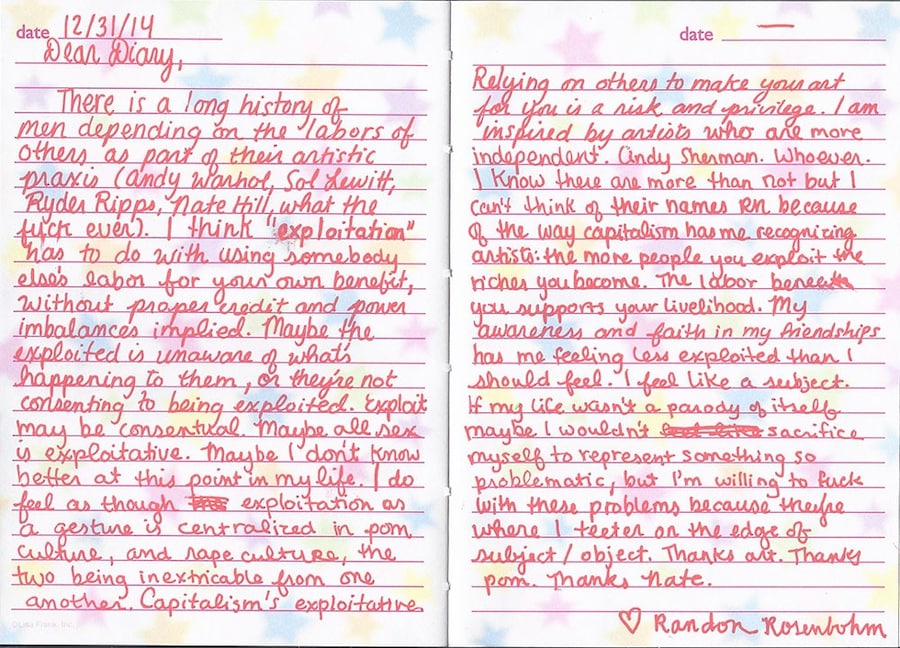 date 12/31/14
Dear Diary,
There is a long history of
men depending on the labors of
others as part of their artistic
praxis (Andy Warhol, Sol Lewitt,
Ryder Ripps, Nate Hill, what the
fuck ever). I think "exploitation"
has to do with using somebody
else's labor for your own benefit,
without proper credit and power
imbalances implied. Maybe the
exploited is unaware of what's
happening to them, or they're not
consenting to being exploited. Exploit
may be consentual. Maybe all sex
is exploitative. Maybe I don't know
better at this point in my life. I do
feel as though exploitation as
a gesture is centralized in porn
culture, and rape culture, the
two being inextricable from one
another. Capitalism's exploitative
©Lisa Frank, Inc.
date —
Relying on others to make your art
for you is a risk and privilege. I am
inspired by artists who are more
independent. Cindy Sherman. Whoever.
I know there are more than not but I
can't think of their names RN because
of the way capitalism has me recognizing
artists: the more people you exploit the
riches you become. The labor
you supports your livelihood. My
awareness and faith in my friendships
has me feeling less exploited than I
should feel. I feel like a subject.
If my life wasn't a parody of itself
maybe I wouldn't sacrifice
myself to represent something so
problematic, but I'm willing to fuck
with these problems because they're
where I teeter on the edge of
subject/object. Thanks art. Thanks
porn. Thanks Nate.
♡ Randon Rosenbohm